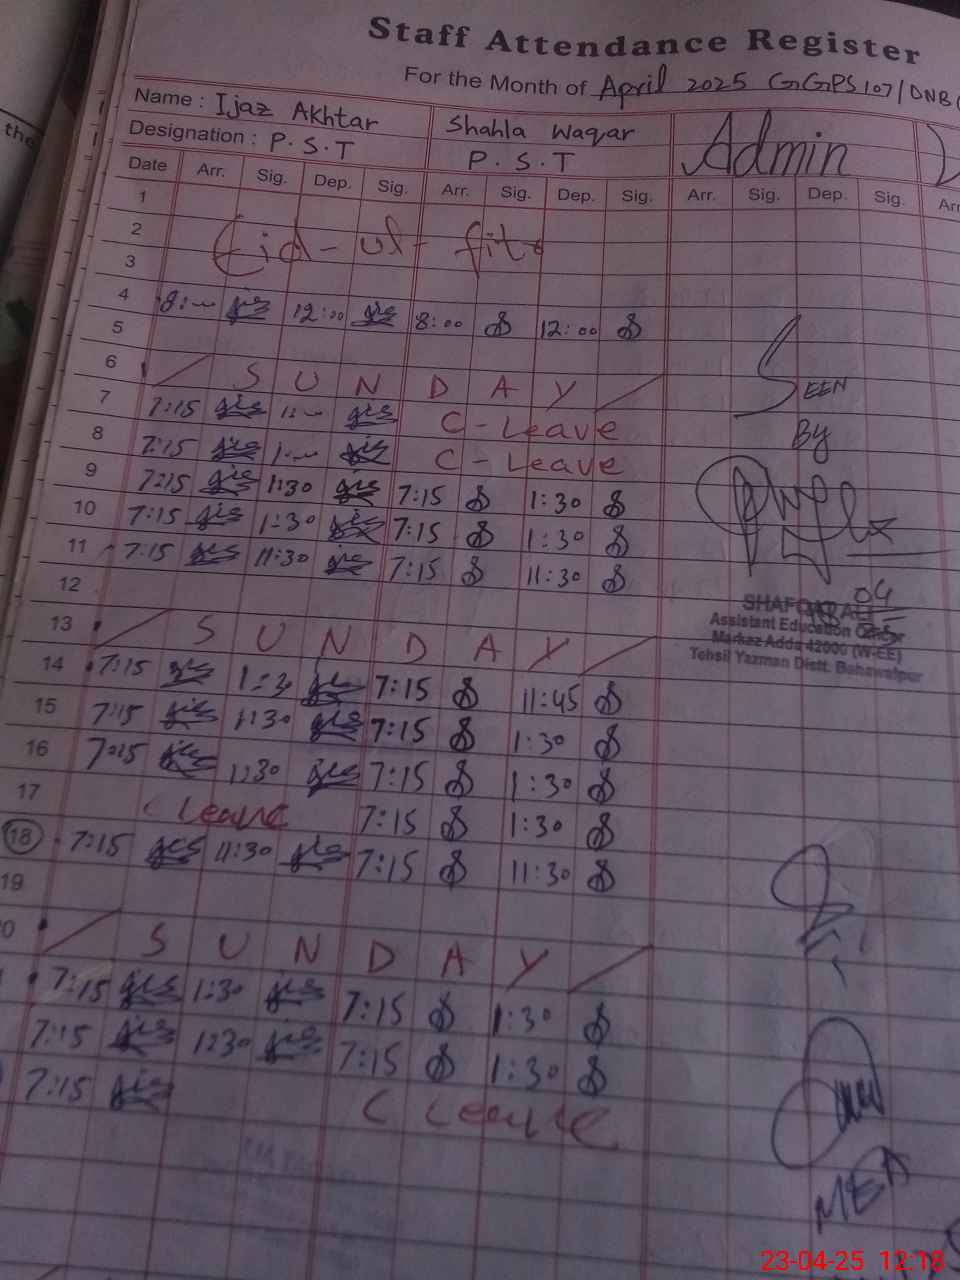 Staff Attendance Register
For the Month of April 2025 GGPS 107/DNB
Name : Ijaz Akhtar Shahla Waqar Admin
Designation : P.S.T P.S.T
Date Arr. Sig. Dep. Sig. Arr. Sig. Dep. Sig. Arr. Sig. Dep. Sig. Arr
1
2 Eid-ul-fitr
3
4 8:00 12:00 8:00 12:00
5
6 SUNDAY
7 7:15 1:00 C-Leave
8 7:15 1:00 C-Leave
9 7:15 1:30 7:15 1:30
10 7:15 1:30 7:15 1:30
11 7:15 11:30 7:15 11:30
12
13 SUNDAY
14 7:15 1:30 7:15 11:45
15 7:15 1:30 7:15 1:30
16 7:15 1:30 7:15 1:30
17 C Leave 7:15 1:30
18 7:15 11:30 7:15 11:30
19
0 SUNDAY
7:15 1:30 7:15 1:30
7:15 1:30 7:15 1:30
7:15 C Leave
SEEN
BY
04
SHAFQAT ALI
Assistant Education Officer
Markaz Adda 42000 (W-EE)
Tehsil Yazman Distt. Bahawalpur
MEA
the
23-04-25 12:18